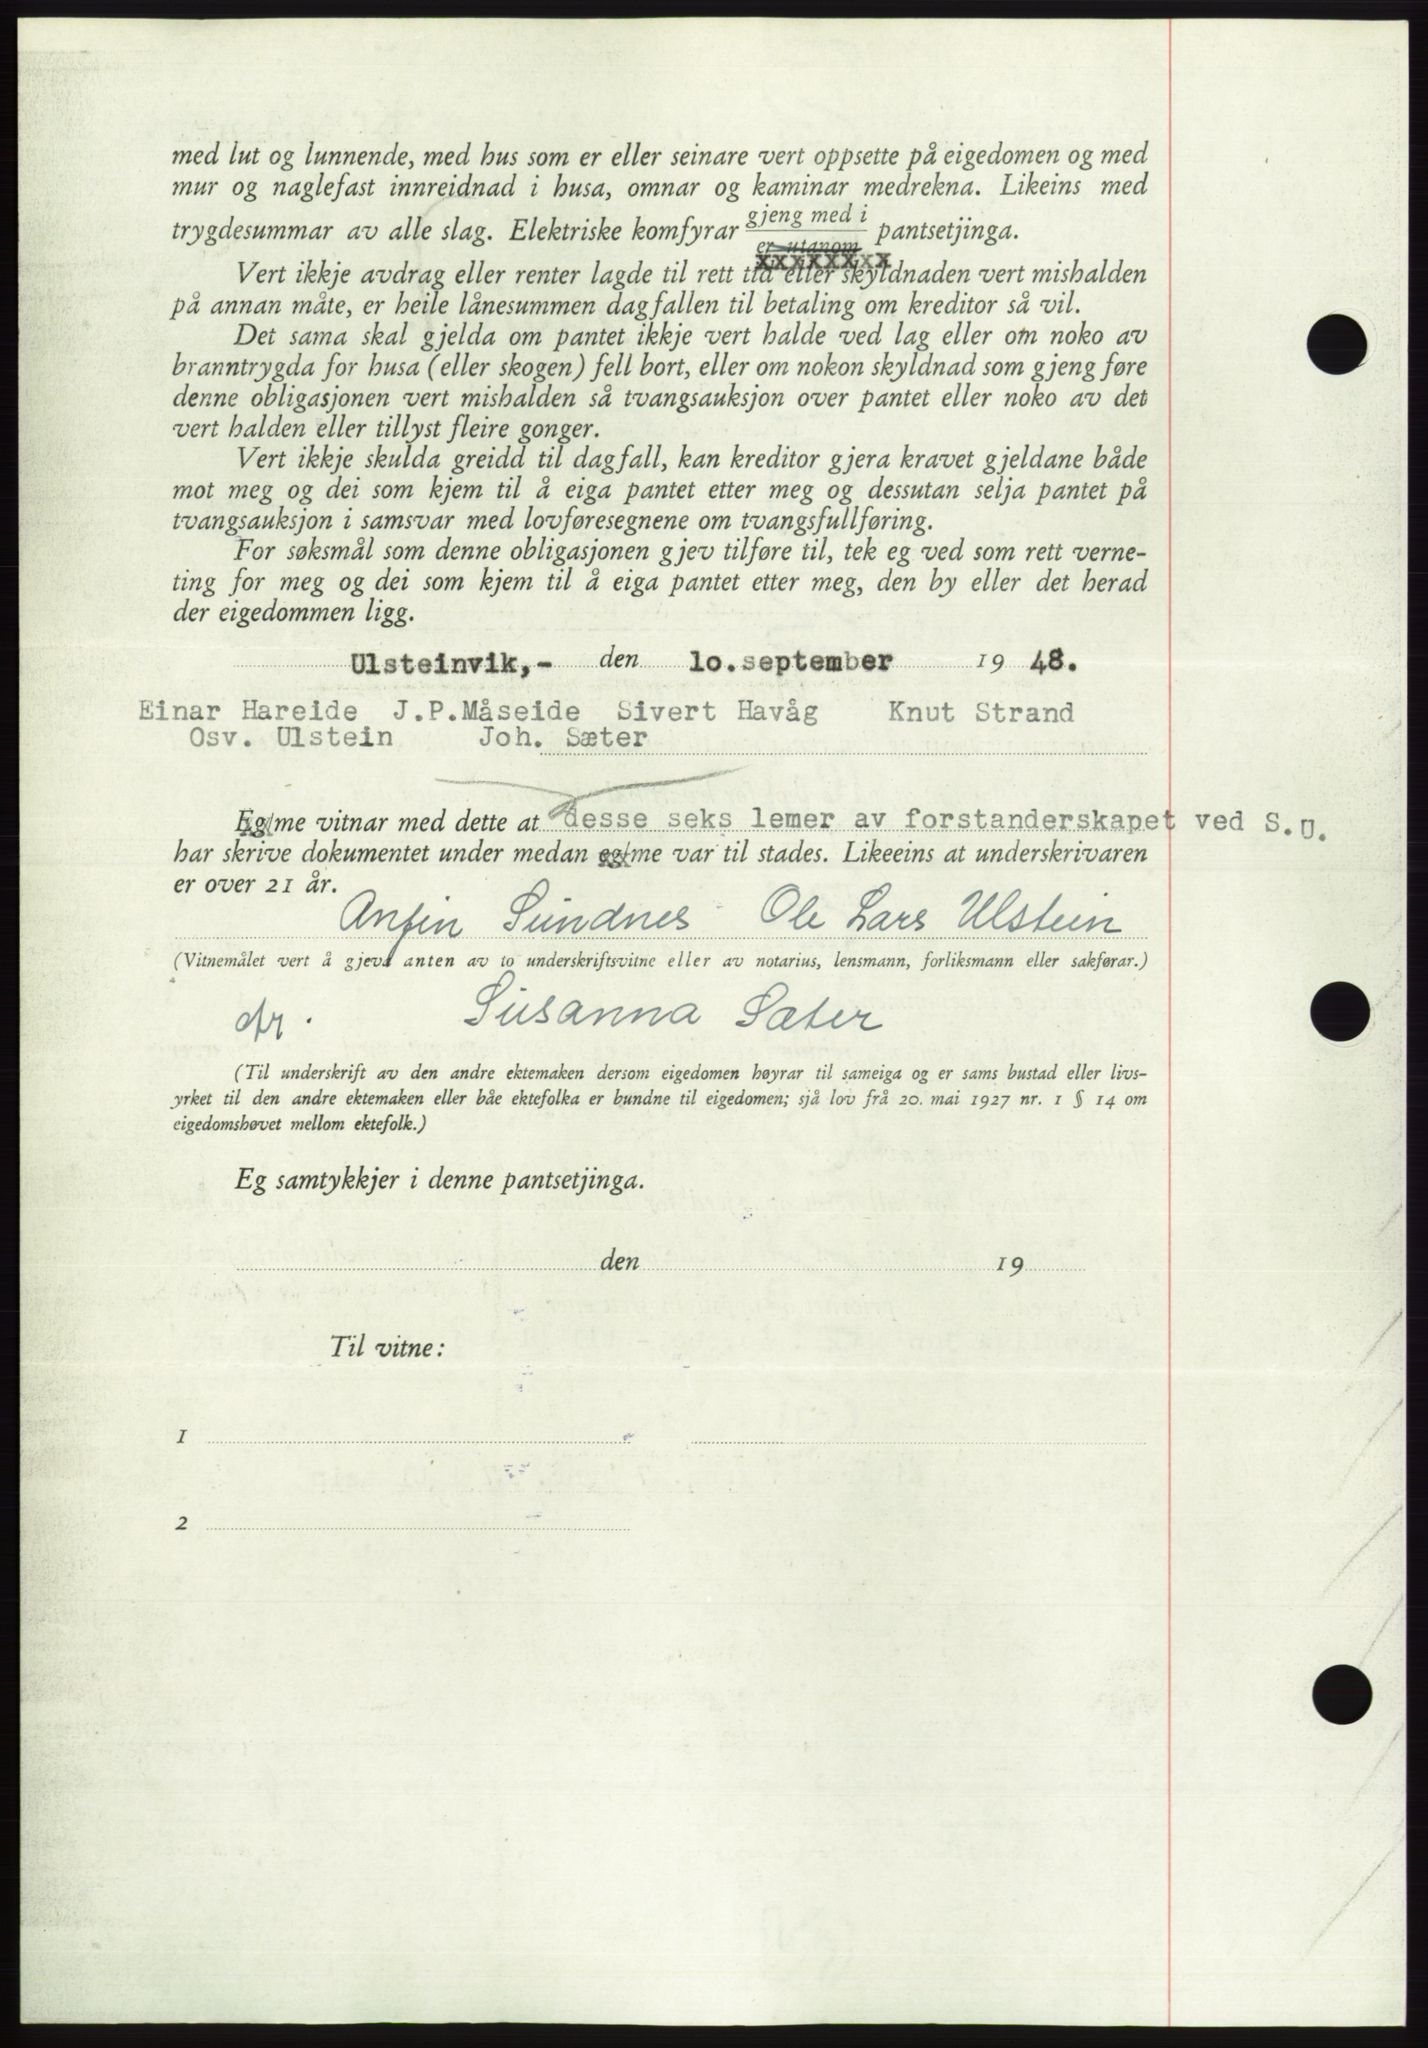 med lut og lunnende, med hus som er eller seinare vert oppsette på eigedomen og med
mur og naglefast innreidnad i husa, omnar og kaminar medrekna. Likeins med
trygdesummar av alle slag. Elektriske komfyrar gjeng med i pantsetjinga.
er utanom
xxxxxxxx
Vert ikkje avdrag eller renter lagde til rett tid eller skyldnaden vert mishalden
på annan måte, er heile lånesummen dagfallen til betaling om kreditor så vil.
Det sama skal gjelda om pantet ikkje vert halde ved lag eller om noko av
branntrygda for husa (eller skogen) fell bort, eller om nokon skyldnad som gjeng føre
denne obligasjonen vert mishalden så tvangsauksjon over pantet eller noko av det
vert halden eller tillyst fleire gonger.
Vert ikkje skulda greidd til dagfall, kan kreditor gjera kravet gjeldane både
mot meg og dei som kjem til å eiga pantet etter meg og dessutan selja pantet på
tvangsauksjon i samsvar med lovføresegnene om tvangsfullføring.
For søksmål som denne obligasjonen gjev tilføre til, tek eg ved som rett verne-
ting for meg og dei som kjem til å eiga pantet etter meg, den by eller det herad
der eigedommen ligg.
Ulsteinvik,- den 10.september 19 48.
Einar Hareide J.P.Måseide Sivert Havåg Knut Strand
Osv. Ulstein Joh. Sæter
Eg/me vitnar med dette at desse seks lemer av forstanderskapet ved S.U.
har skrive dokumentet under medan eg/me var til stades. Likeeins at underskrivaren
er over 21 år.
Anfin Sundnes Ole Lars Ulstein
(Vitnemålet vert å gjeva anten av to underskriftsvitne eller av notarius, lensmann, forliksmann eller sakførar.)
Susanna Sæter
(Til underskrift av den andre ektemaken dersom eigedomen høyrar til sameiga og er sams bustad eller livs-
yrket til den andre ektemaken eller båe ektefolka er bundne til eigedomen; sjå lov frå 20. mai 1927 nr. 1 § 14 om
eigedomshøvet mellom ektefolk.)
Eg samtykkjer i denne pantsetjinga.
den 19
Til vitne:
1
2